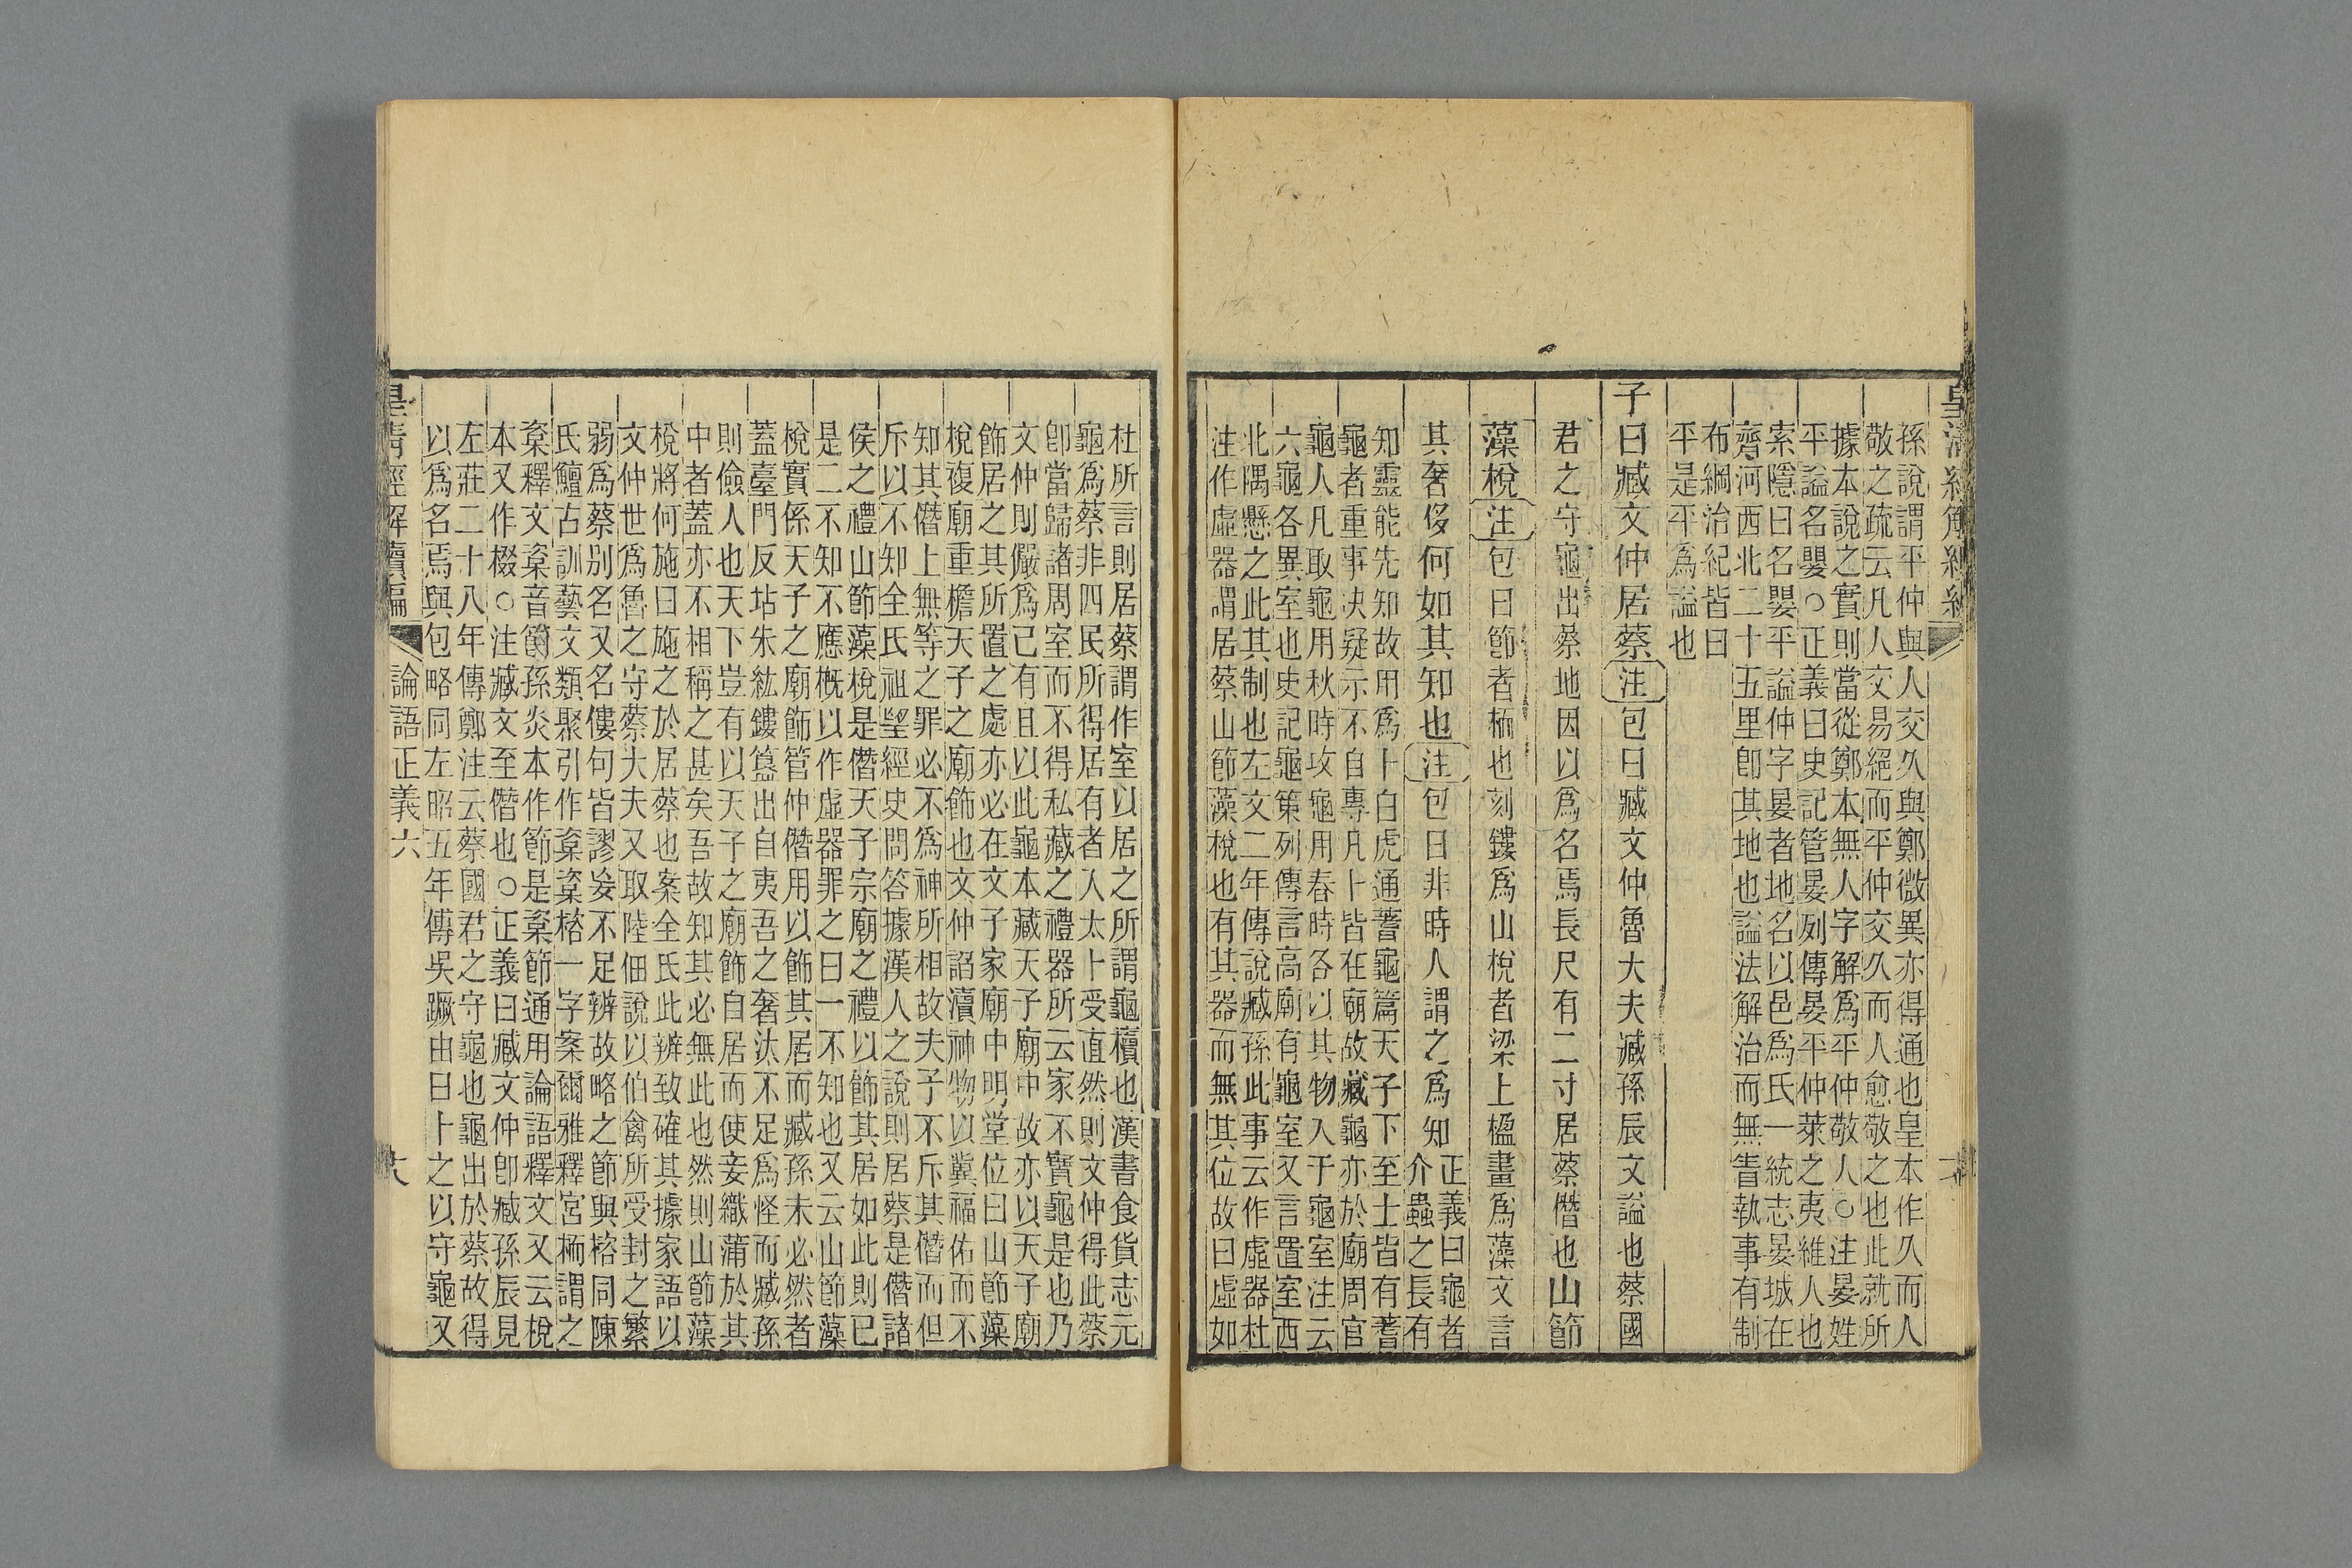 皇清經解續編
孫說謂平仲與人交久與鄭微異亦得通也皇本作久而人
敬之疏云凡人交易絕而平仲交久而人愈敬之也此就所
據本說之實則當從鄭本無人字解爲平仲敬人○注晏姓
平謚名嬰○正義曰史記管晏列傳晏平仲萊之夷維人也
索隱曰名嬰平謚仲字晏者地名以邑爲氏一統志晏城在
齊河西北二十五里卽其地也謚法解治而無眚執事有制
布綱治紀皆曰
平是平爲謚也
子曰臧文仲居蔡注包曰臧文仲魯大夫臧孫辰文謚也蔡國
君之守龜出蔡地因以爲名焉長尺有二寸居蔡僭也山節
藻梲注包曰節者栭也刻鏤爲山梲者梁上楹畫爲藻文言
其奢侈何如其知也注包曰非時人謂之爲知正義曰龜者
介蟲之長有
知靈能先知故用爲卜白虎通蓍龜篇天子下至士皆有蓍
龜者重事決疑示不自專凡卜皆在廟故藏龜亦於廟周官
龜人凡取龜用秋時攻龜用春時各以其物入于龜室注云
六龜各異室也史記龜策列傳言高廟有龜室又言置室西
北隅懸之此其制也左文二年傳說臧孫此事云作虛器杜
注作虛器謂居蔡山節藻梲也有其器而無其位故曰虛如
杜所言則居蔡謂作室以居之所謂龜櫝也漢書食貨志元
龜爲蔡非四民所得居有者入太卜受直然則文仲得此蔡
卽當歸諸周室而不得私藏之禮器所云家不寶龜是也乃
文仲則儼爲已有且以此龜本藏天子廟中故亦以天子廟
飾居之其所置之處亦必在文子家廟中明堂位曰山節藻
梲複廟重檐天子之廟飾也文仲諂瀆神物以冀福佑而不
知其僭上無等之罪必不爲神所相故夫子不斥其僭而但
斥以不知全氏祖望經史問答據漢人之說則居蔡是僭諸
侯之禮山節藻梲是僭天子宗廟之禮以飾其居如此則已
是二不知不應概以作虛器罪之曰一不知也又云山節藻
梲實係天子之廟飾管仲僭用以飾其居而臧孫未必然者
蓋臺門反坫朱紘鏤簋出自夷吾之奢汰不足爲怪而臧孫
則儉人也天下豈有以天子之廟飾自居而使妾織蒲於其
中者蓋亦不相稱之甚矣吾故知其必無此也然則山節藻
梲將何施曰施之於居蔡也案全氏此辨致確其據家語以
文仲世爲魯之守蔡大夫又取陸佃說以伯禽所受封之繁
弱爲蔡別名又名僂句皆謬妄不足辨故略之節與榕同陳
氏鱣古訓藝文類聚引作楶楶格一字案爾雅釋宮栭謂之
楶釋文楶音節孫炎本作節是楶節通用論語釋文又云梲
本又作棳○注臧文至僭也○正義曰臧文仲卽臧孫辰見
左莊二十八年傳鄭注云蔡國君之守龜也龜出於蔡故得
以爲名焉與包略同左昭五年傳吳蹶由曰卜之以守龜又
皇清經解續編 論語正義六